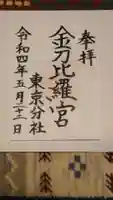 奉拝
金刀比羅宮
東京分社
令和四年五月二十一日